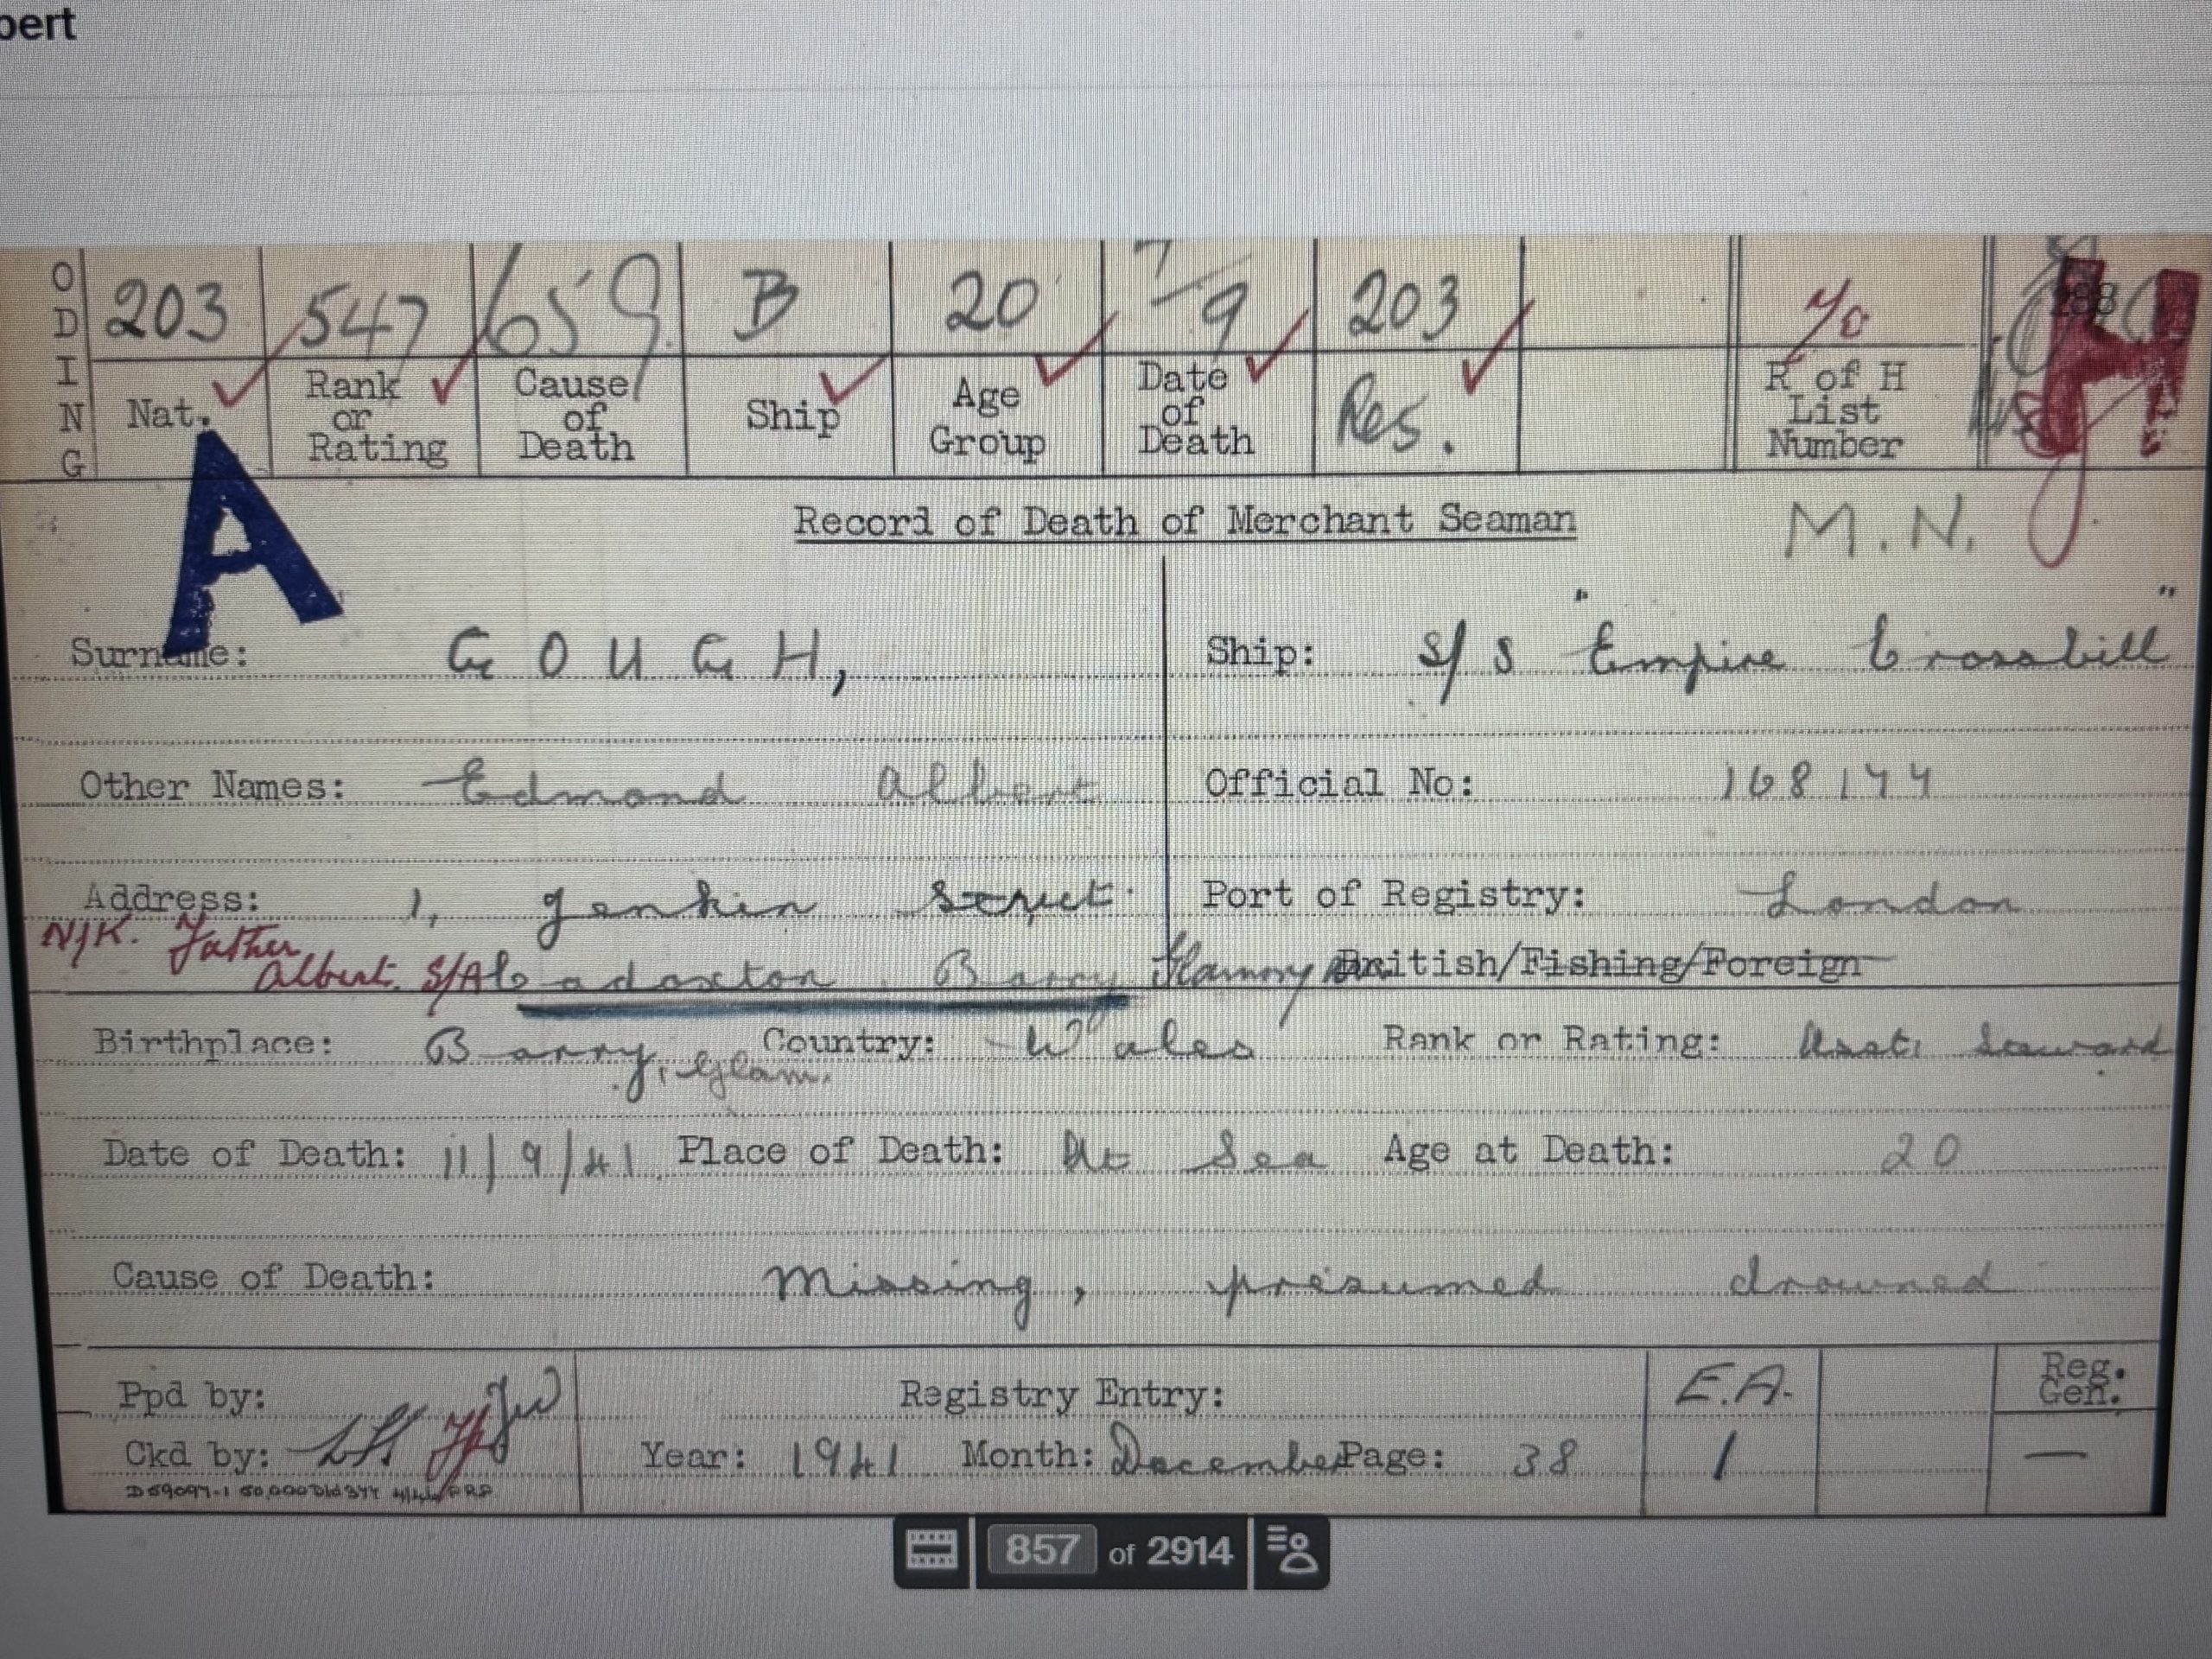 bert
CODING
203 547 659 B 20 7/9 203
Nat. Rank or Rating Cause of Death Ship Age Group Date of Death Res. R of H List Number
A H
Record of Death of Merchant Seaman M.N.
Surname: GOUGH, Ship: S/S "Empire Crossbill"
Other Names: Edmond Albert Official No: 168144
Address: 1, Jenkin Street Port of Registry: London
N/K. Father
Albert. S/A Cadoxton Barry British/Fishing/Foreign
Birthplace: Barry, Glam. Country: Wales Rank or Rating: Asst. Steward
Date of Death: 11/9/41 Place of Death: At Sea Age at Death: 20
Cause of Death: Missing, presumed drowned
Ppd by: Registry Entry: E.A. Reg. Gen.
Ckd by: Year: 1941 Month: December Page: 38 1 —
857 of 2914